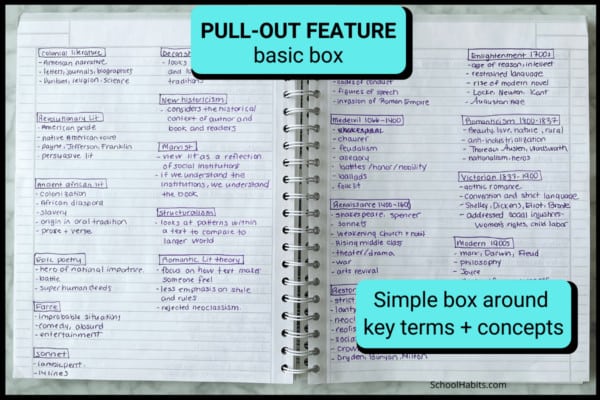 PULL-OUT FEATURE
basic box
colonial literature
- American narrative
- letters, journals, biographies
- Puritans, religion, science
Revolutionary Lit
- American pride
- native American voice
- Payne, Jefferson, Franklin
persuasive lit
Ancient african lit
- colonization
- African diaspora
- slavery
- origin in oral tradition
- prose + verse
Epic poetry
- hero of national importance
- battle
- super human deeds
Farce
- improbable situations
- comedy, absurd
- entertainment
sonnet
- 14 lines
- looks
traditions
New historicism
- considers the historical
context of author and
book, and readers
Marxist
- view lit as a reflection
of social institutions
- if we understand the
institutions, we understand
the book
Structuralism
- looks at patterns within
a text to compare to
larger world
Romantic Lit theory
- focus on how text makes
someone feel
- less emphasis on style
and rules
- rejected neoclassism
- codes of conduct
- figures of speech
- invasion of Roman Empire
- chaucer
- feudalism
- allegory
- battles/honor/nobility
- ballads
- folk lit
- shakespeare, spencer
- sonnets
- weakening church +
- Rising middle class
- theater/drama
- war
- arts revival
Dryden, Bunyon, Milton
Enlightenment 1700s
- age of reason, interest
- restrained language
- rise of modern novel
- Locke, Newton, Kant
- Augustan age
Romanticism 1800-1837
- Beauty, love, nature, rural
- anti-industrialization
- Thoreau, Austen, Wordsworth
- nationalism, heros
Victorian 1837-1900
- gothic romance
- Conversion and strict language
- Shelley, Dickens, Eliot, Bronte
- addressed social injustices-
women's rights, child labor
Modern 1900s
- marx, Darwin, Freud
- philosophy
- Joyce
Simple box around
key terms + concepts
SchoolHabits.com